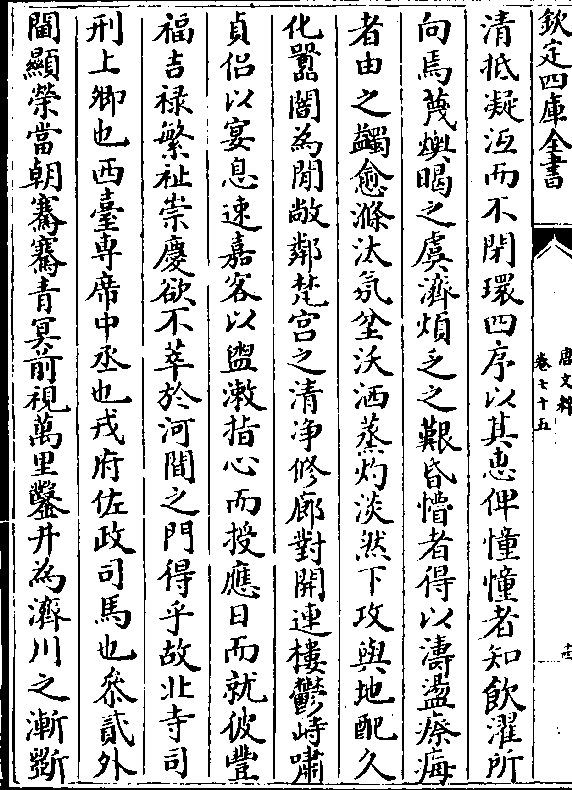 欽定四庫全書
唐文粹
卷七十五
清抵凝沍而不閉環四序以其恵俾憧憧者知飲濯所
向焉蔑燠暍之虞濟煩乏之艱昏懵者得以濤盪療痗
者由之蠲愈滌汰氛坌沃洒蒸灼淡然下攻與地配久
化囂闇為閒敞鄰梵宫之清浄修廊對開連樓鬱峙嘯
貞侣以宴息速嘉客以盥漱指心而授應日而就彼豐
福吉禄繁祉崇慶欲不萃於河間之門得乎故北寺司
刑上卿也西臺専席中丞也戎府佐政司馬也叅貳外
閫顯榮當朝騫騫青冥前視萬里鑿井為濟川之漸斵